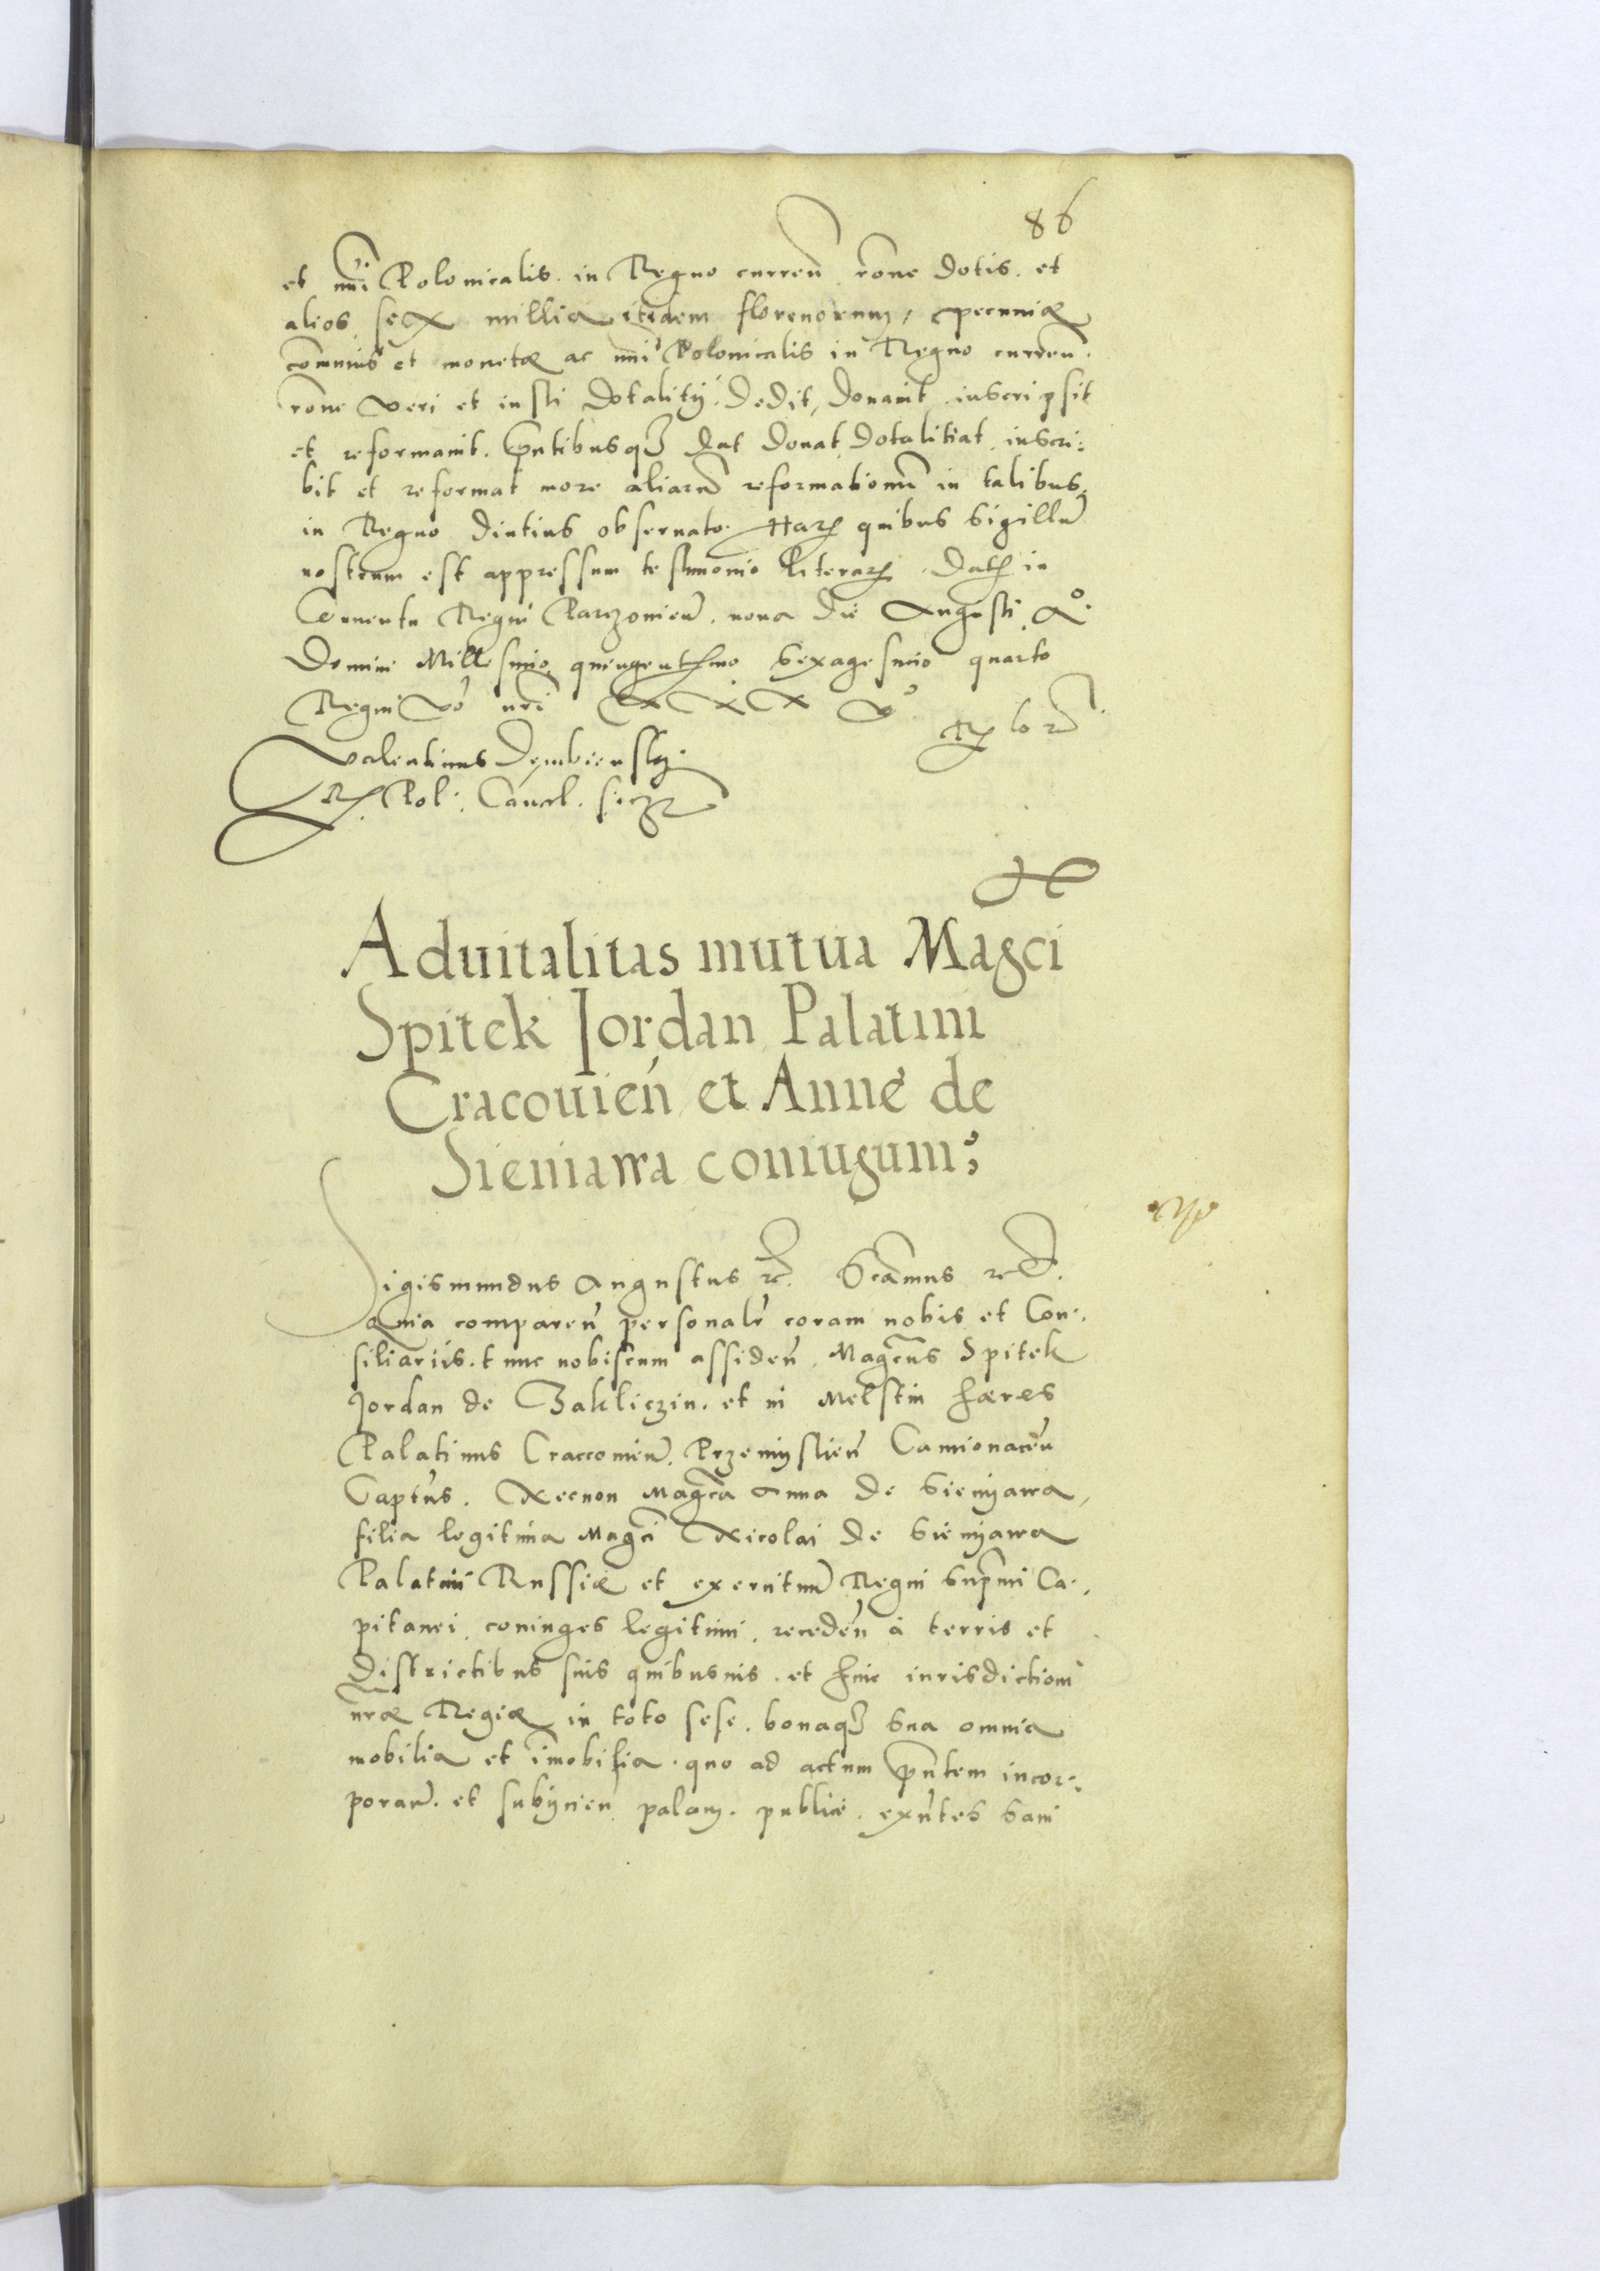 86
et nūi Polonicalis in Regno currēn rōne dotis. et
alios sex millia itidem florenorum, pecuniæ
comunis et monetæ ac nūi Polonicalis in Regno curren.
rōne veri et iusti dotalitij. Dedit, donauit inscripsit
et reformauit. Pn̄tibusqȝ dat donat dotalitiat, inscri:
bit et reformat more aliarū reformationū in talibus
in Regno diutius obseruato. Harꝝ quibus sigillū
nostrum est appressum testimonio literarꝝ. Datꝝ in
Conuentu Regni Parczouien̄. nona die Augusti Aº
Domini Millesimo quingentesimo sexagesimo quarto
Regni vō nr̄i XXX Vº
Valentinus Dembiensky
R. Pol. Cancel. sszt
Aduitalitas mutua Magci
Spitek Jordan Palatini
Cracouień et Anne de
Sieniawa coniugum;
Sigismundus Augustus rc̄. Sc̄amus rc̄.
Quia comparen̄ personalr̄ coram nobis et Con:
siliariis tunc nobiscum assiden̄, Magcus Spitek
Jordan de Zakliczin. et in Melstin hæres
Palatinus Craccouien̄. Przemyslien̄ Camionacen̄
Capt̄us. Necnon Magca Anna de Sieniyawa,
filia legitima Magci Nicolai de Sieniyawa
Palatini Russiæ et exercituū Regni Supmi Ca:
pitanei, coniuges legitimi, receden̄ à terris et
districtibus suis quibusuis. et huic iurisdictioni
nr̄æ Regiæ in toto sese. bonaqȝ sua omnia
mobilia et im̄obilia. quo ad actum pn̄tem incor:
poran̄. et subijcien̄ palam. publice. exn̄tes sani